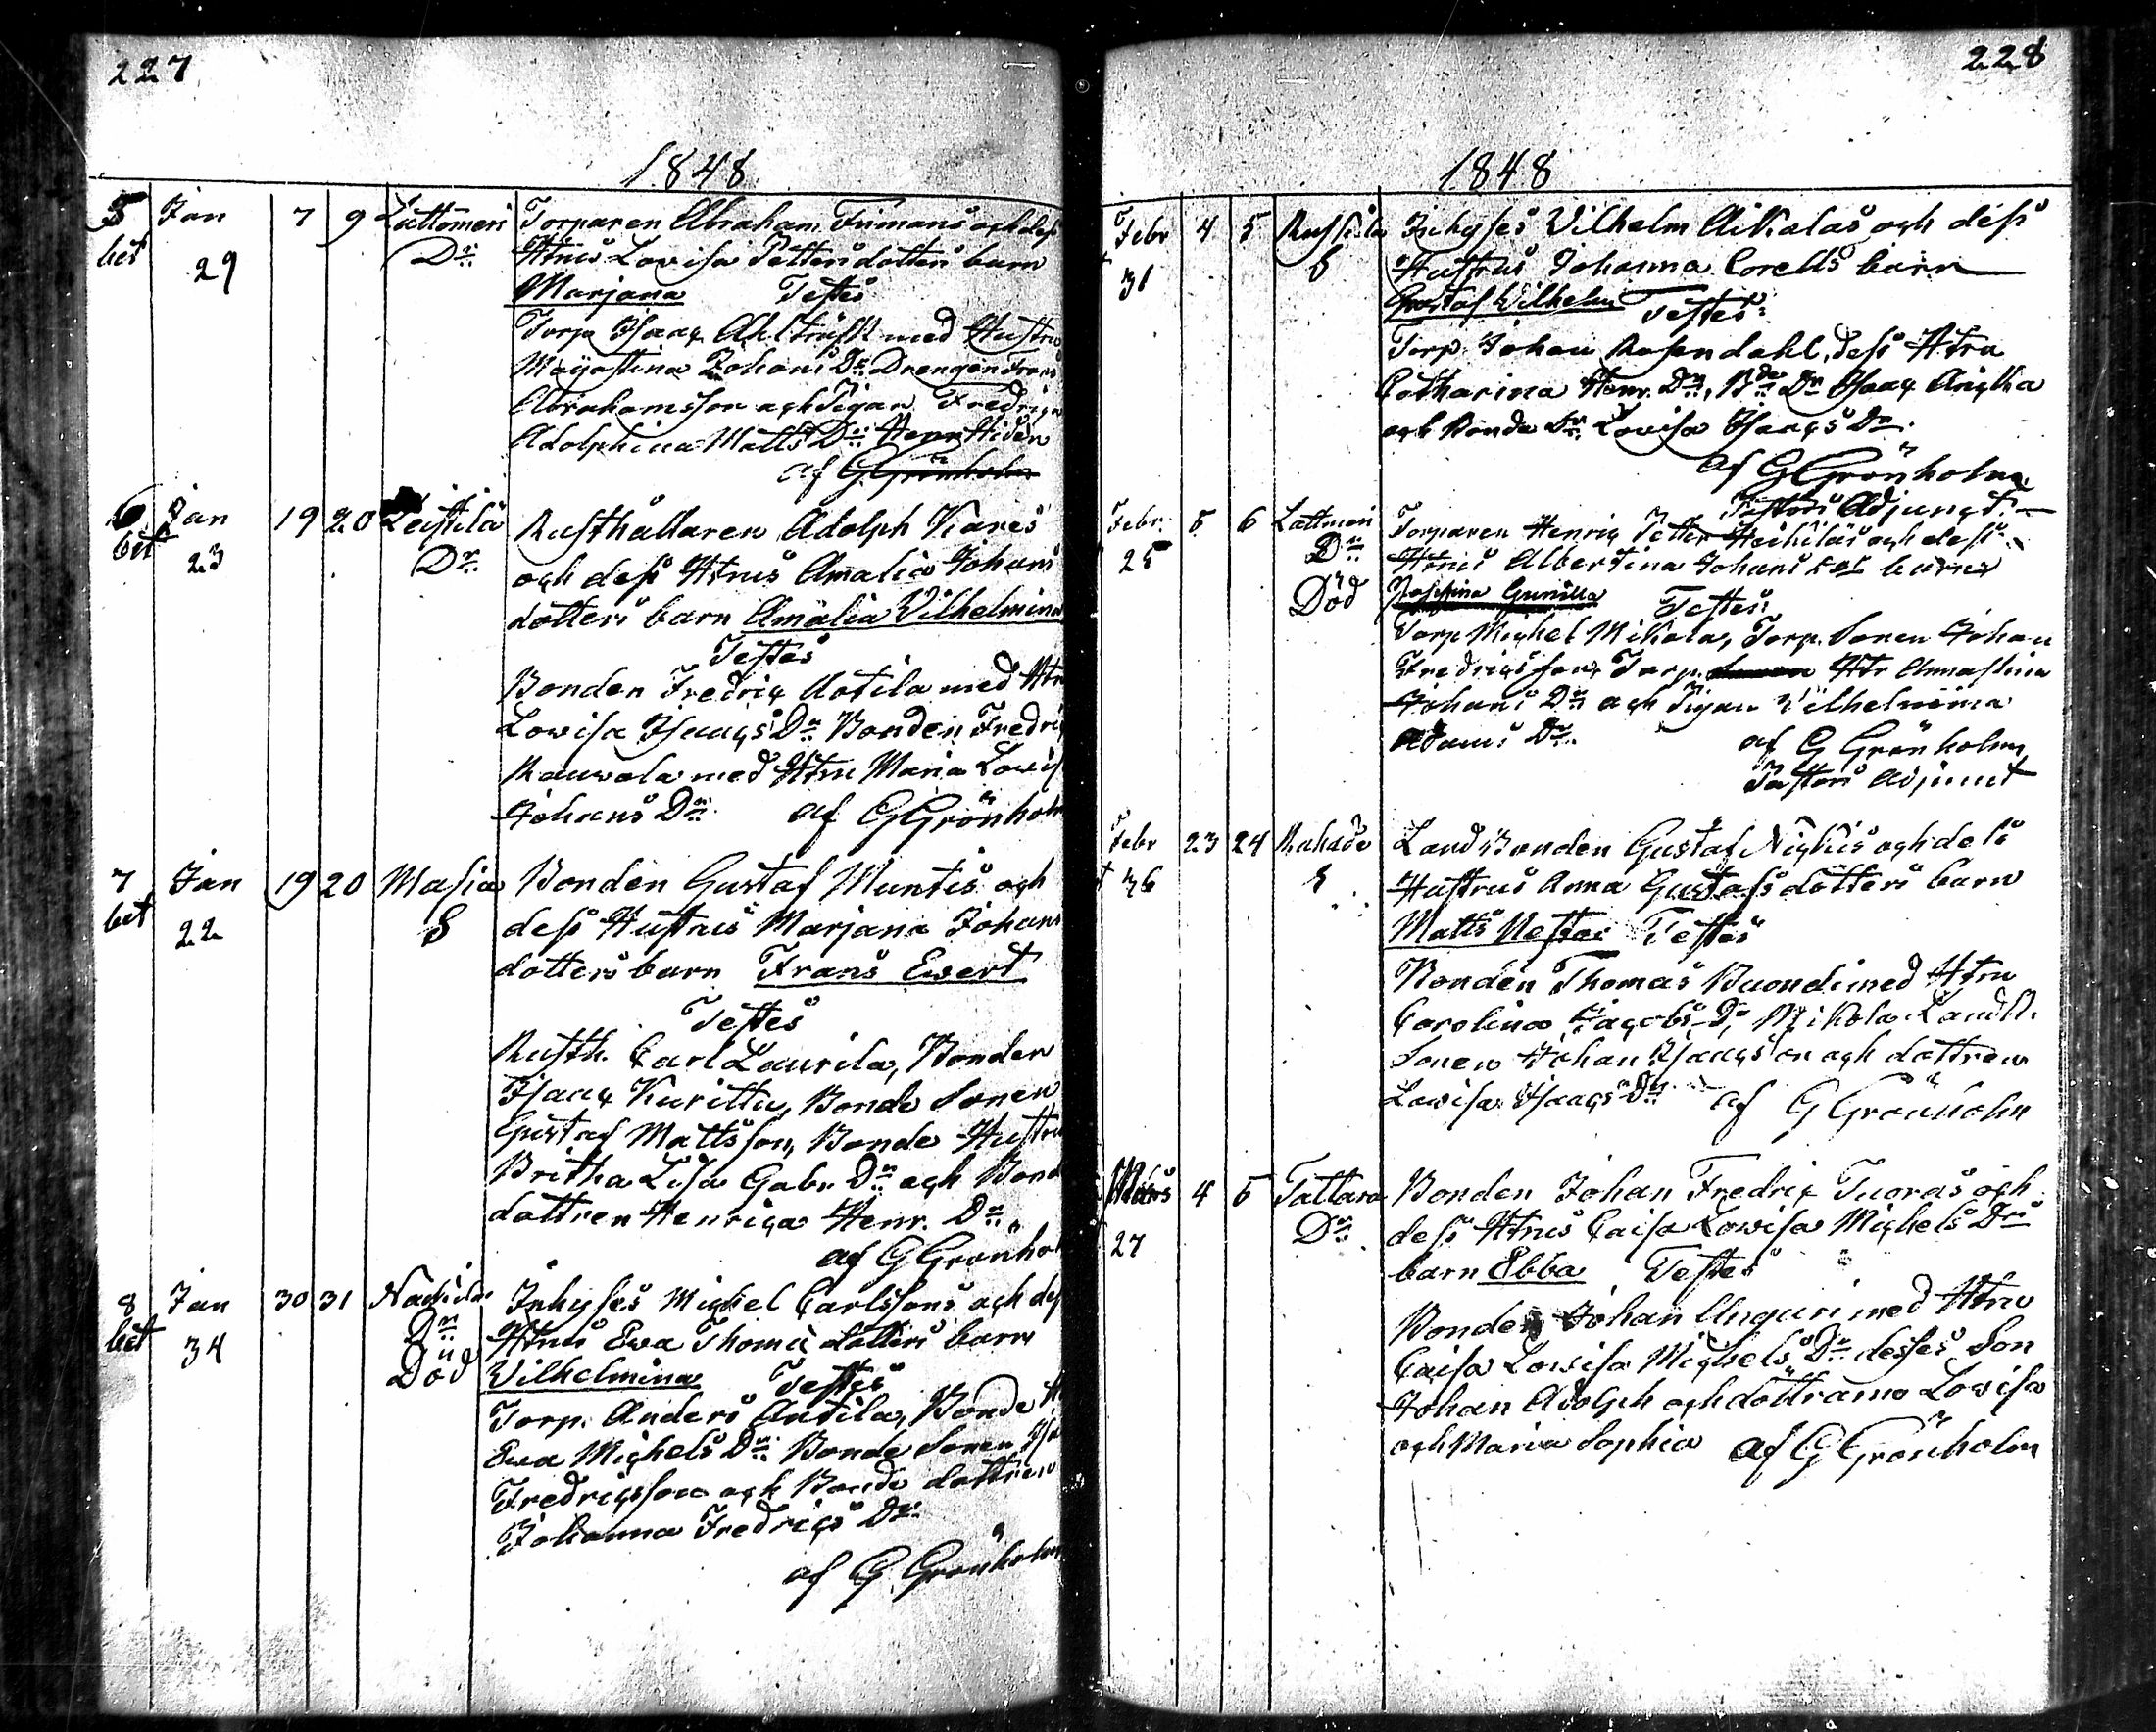 227
1848
5 Jan 7 9 Lattomeri Torparen Abraham Frimans och dess
bet 29 Dr Htrus Lovisa Petters dotters barn
Marjana Testes
Torp Isaac Ahlträsk med Hustru
Majastina Johans Dr Drengen Frans
Abrahamsson och Pigan Fredriqa
Adolphina Matts Dr
af G Grönholm
6 Jan 19 20 Leistilä Rusthållaren Adolph Kares
bet 23 Dr och dess Htrus Amalia Johans
dotters barn Amalia Vilhelmina
Testes
Bonden Fredric Antila med Htr
Lovisa Isaacs Dr Bonden Fredric
med Htru Maria Lovis
Johans Dr af G Grönholm
7 Jan 19 20 Masia Bonden Gustaf Muntis och
bet 22 S dess Hustrus Marjana Johans
dotters barn Frans Ewert
Testes
Rusth. Carl Laurila, Bonden
Isaac Kurittu, Bonde Sonen
Gustaf Mattsson, Bonde Hustru
Britha Lisa Gabr. Dr och Bond
dottren Henrica Henr. Dr
af G Grönhol
8 Jan 30 31 Inhyses Michel Carlssons och des
bet 34 Dr Htrus Ewa Thomä dotters barn
Död Vilhelmina Testes
Torp. Anders Antila, Bonde H
Ewa Michels Dr Bonde Sonen
Fredricsson och Bonde dottren
Johanna Fredrics Dr
af G Grönholm
228
1848
Febr 4 5 Inhyses Vilhelm Aikalas och dess
31 S Hustrus Johanna Corells barn
Gustaf Vilhelm Testes
Torp. Johan Rosendahl, dess Htru
Catharina Henr. Dr, Bde Dr Isaac
och Bonde Dr Lovisa Isaacs Dr
af G Grönholm
Pastors Adjunct
Febr 5 6 Lattmeri Torparen Henric Petter Heikiläs och dess
25 Dr Htrus Albertina Johans barn
Död Josefina Gunilla Testes
Torp Michel Mikola, Torp. Sonen Johan
Fredricsson, Torp. Htr Annastina
Johans Dr och Pigan Vilhelmina
Adams Dr af G Grönholm
Pastors Adjunct
Febr 23 24 Land Bonden Gustaf och dess
36 S Hustrus Anna Gustafs dotters barn
Matts Nestor Testes
Bonden Thomas med Htru
Carolina Jacobs Dr, Mikola Landb.
Sonen Johan Isaacson och dottren
Lovisa Isaacs Dr af G Grönholm
Mars 4 5 Tattara Bonden Johan Fredric Tuoras och
27 Dr dess Htrus Caisa Lovisa Michels Drs
barn Ebba Testes
Bonden Johan Unguri med Htru
Caisa Lovisa Michels Dr desses Son
Johan Adolph och döttrarna Lovisa
och Maria Sophia af G Grönholm